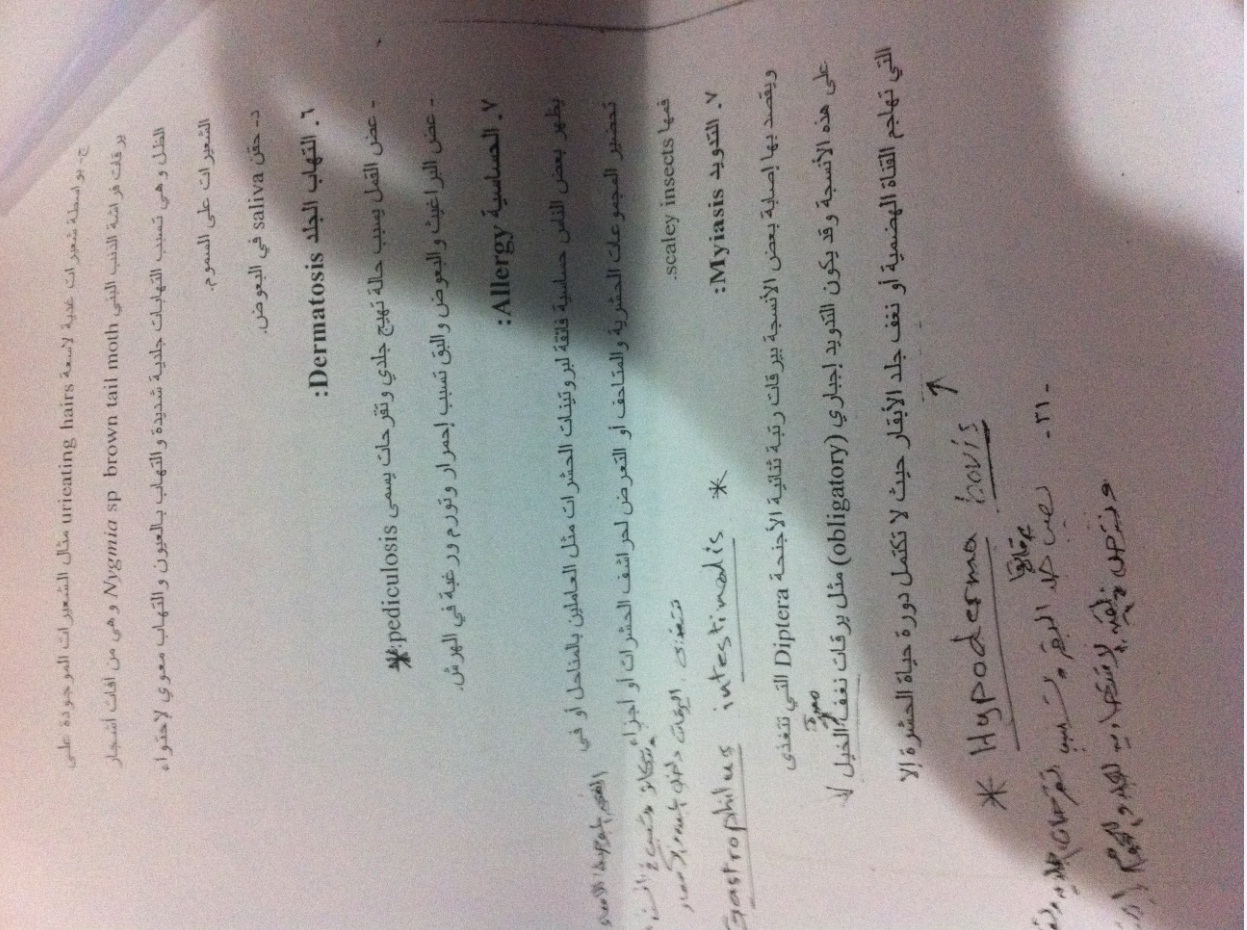 ج- بواسطة شعيرات غدية لاسعة uricating hairs مثال الشعيرات الموجودة على
يرقات فراشة الذنب البني Nygmia sp brown tail moth وهى من افات اشجار
الظل وهى تسبب التهابات جلدية شديدة والتهاب بالعيون والتهاب معوي لاحتواء
الشعيرات على السموم.
د- حقن saliva في البعوض.
٦. التهاب الجلد Dermatosis:
- عض القمل يسبب حالة تهيج جلدي وتقرحات يسمى pediculosis:
- عض البراغيث والبعوض والبق تسبب إحمرار وتورم ورغبة في الهرش.
٧. الحساسية Allergy:
يظهر بعض الناس حساسية فائقة لبروتينات الحشرات مثل العاملين بالمناحل أو في
تحضير المجموعات الحشرية والمتاحف أو التعرض لحراشف الحشرات أو أجزاء
فمها scaley insects.
٧. التدويد Myiasis:
* Gastrophilus intestinalis
ويقصد بها إصابة بعض الأنسجة بيرقات رتبة ثنائية الأجنحة Diptera التي تتغذى
على هذه الأنسجة وقد يكون التدويد إجباري (obligatory) مثل يرقات نغف الخيل
التي تهاجم القناة الهضمية أو نغف جلد الأبقار حيث لا تكتمل دورة حياة الحشرة إلا
* Hypoderma bovis
- ٣١ -